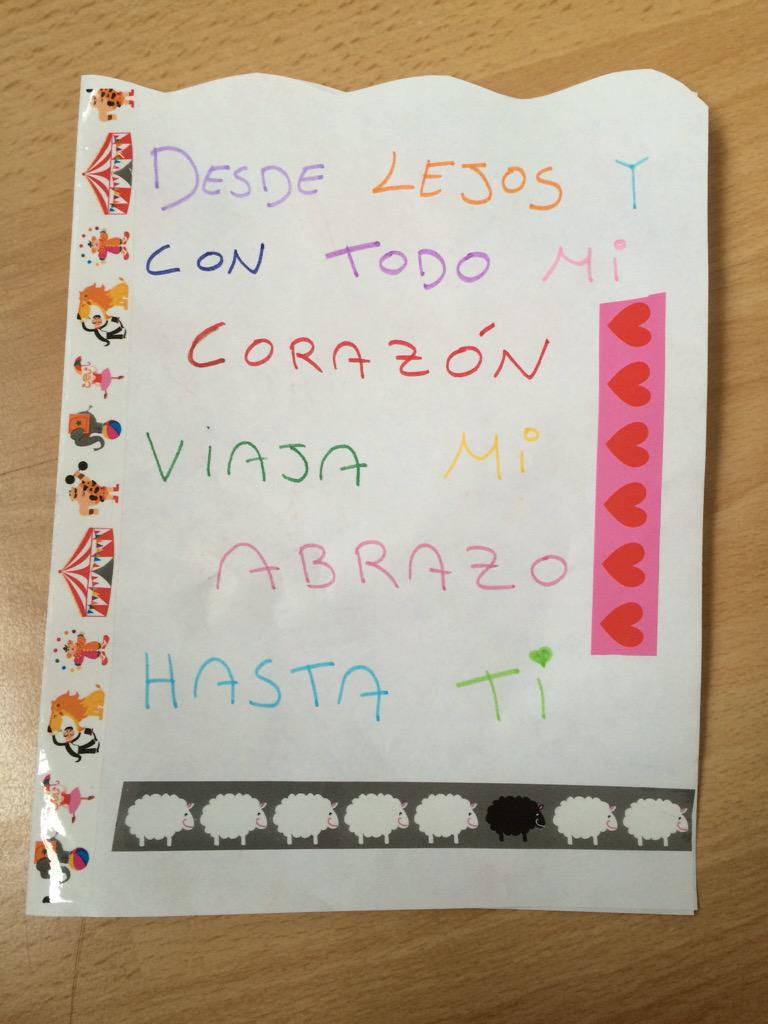 DESDE LEJOS Y
CON TODO Mi
CORAZÓN
ViAJA Mi
ABRAZO
HASTA Ti